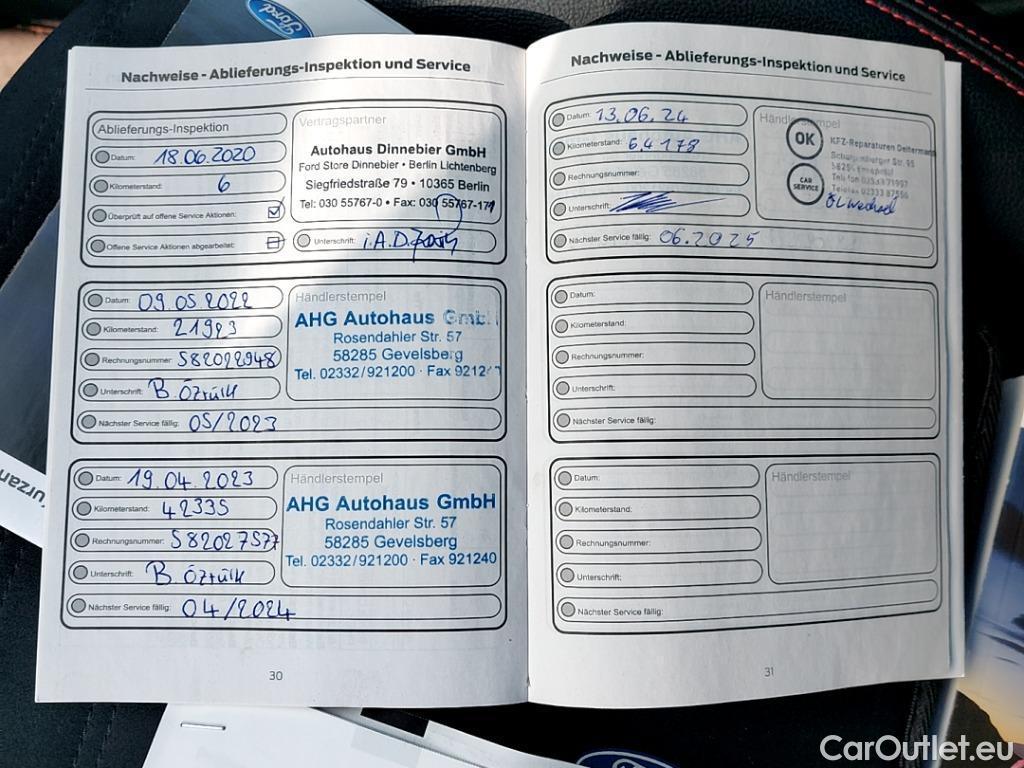 Ford
Nachweise - Ablieferungs-Inspektion und Service
Ablieferungs-Inspektion
Datum: 18.06.2020
Kilometerstand: 6
Überprüft auf offene Service Aktionen:
Offene Service Aktionen abgearbeitet:
Vertragspartner
Autohaus Dinnebier GmbH
Ford Store Dinnebier • Berlin Lichtenberg
Siegfriedstraße 79 • 10365 Berlin
Tel: 030 55767-0 • Fax: 030 55767-171
Unterschrift: i.A.
Datum: 09.05.2022
Kilometerstand: 21923
Rechnungsnummer: S82022948
Unterschrift: B. Öztürk
Nächster Service fällig: 05/2023
Händlerstempel
AHG Autohaus GmbH
Rosendahler Str. 57
58285 Gevelsberg
Tel. 02332/921200 · Fax 92124
Datum: 19.04.2023
Kilometerstand: 42335
Rechnungsnummer: S82027577
Unterschrift: B. Öztürk
Nächster Service fällig: 04/2024
Händlerstempel
AHG Autohaus GmbH
Rosendahler Str. 57
58285 Gevelsberg
Tel. 02332/921200 · Fax 921240
30
Nachweise - Ablieferungs-Inspektion und Service
Datum: 13.06.24
Kilometerstand: 64178
Rechnungsnummer:
Unterschrift:
Nächster Service fällig: 06.2025
Händlerstempel
OK
CAR
SERVICE
KFZ-Reparaturen
Ölwechsel
Datum:
Kilometerstand:
Rechnungsnummer:
Unterschrift:
Nächster Service fällig:
Händlerstempel
Datum:
Kilometerstand:
Rechnungsnummer:
Unterschrift:
Nächster Service fällig:
Händlerstempel
31
urzan
CarOutlet.eu